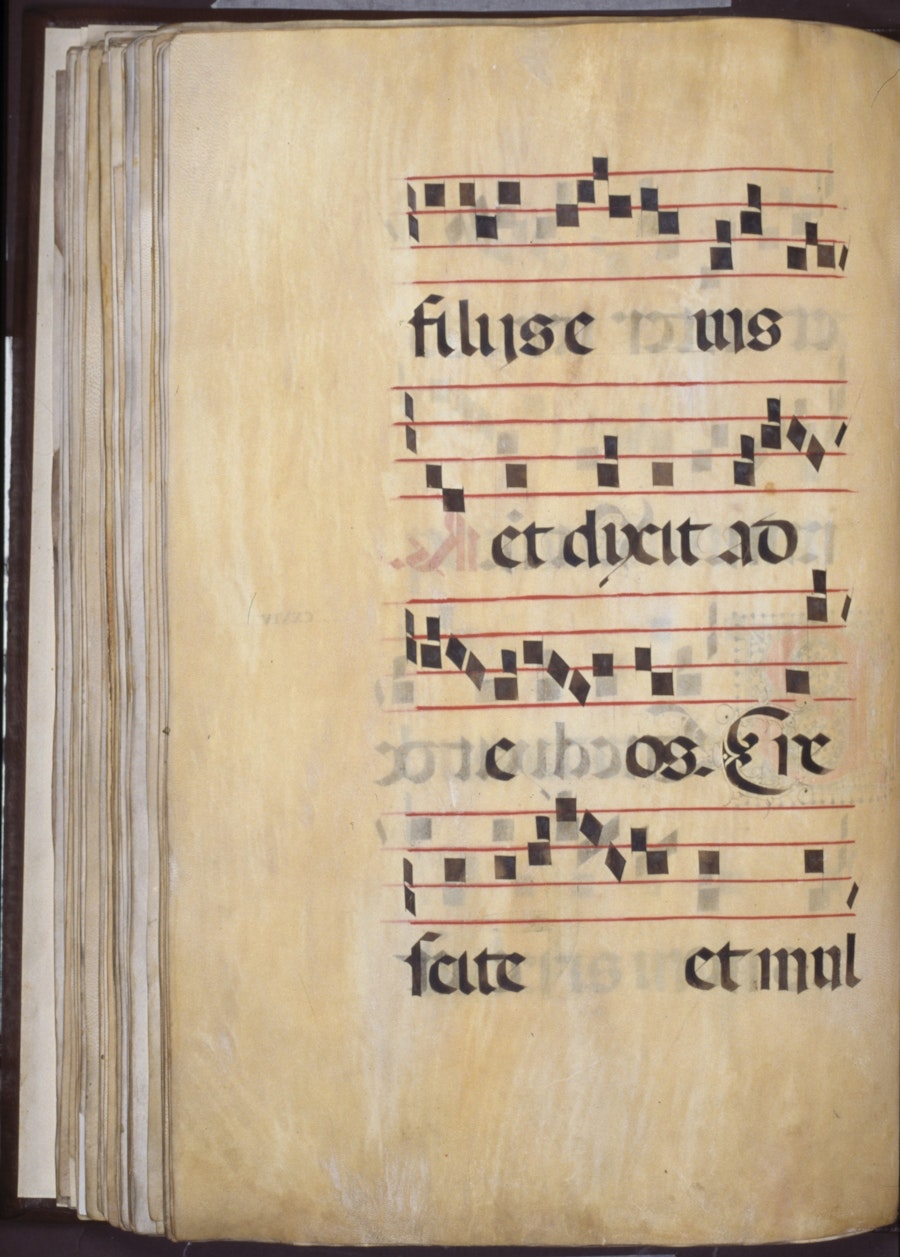 filijs e uis
et dixit ad
e os. Cre
scite et mul